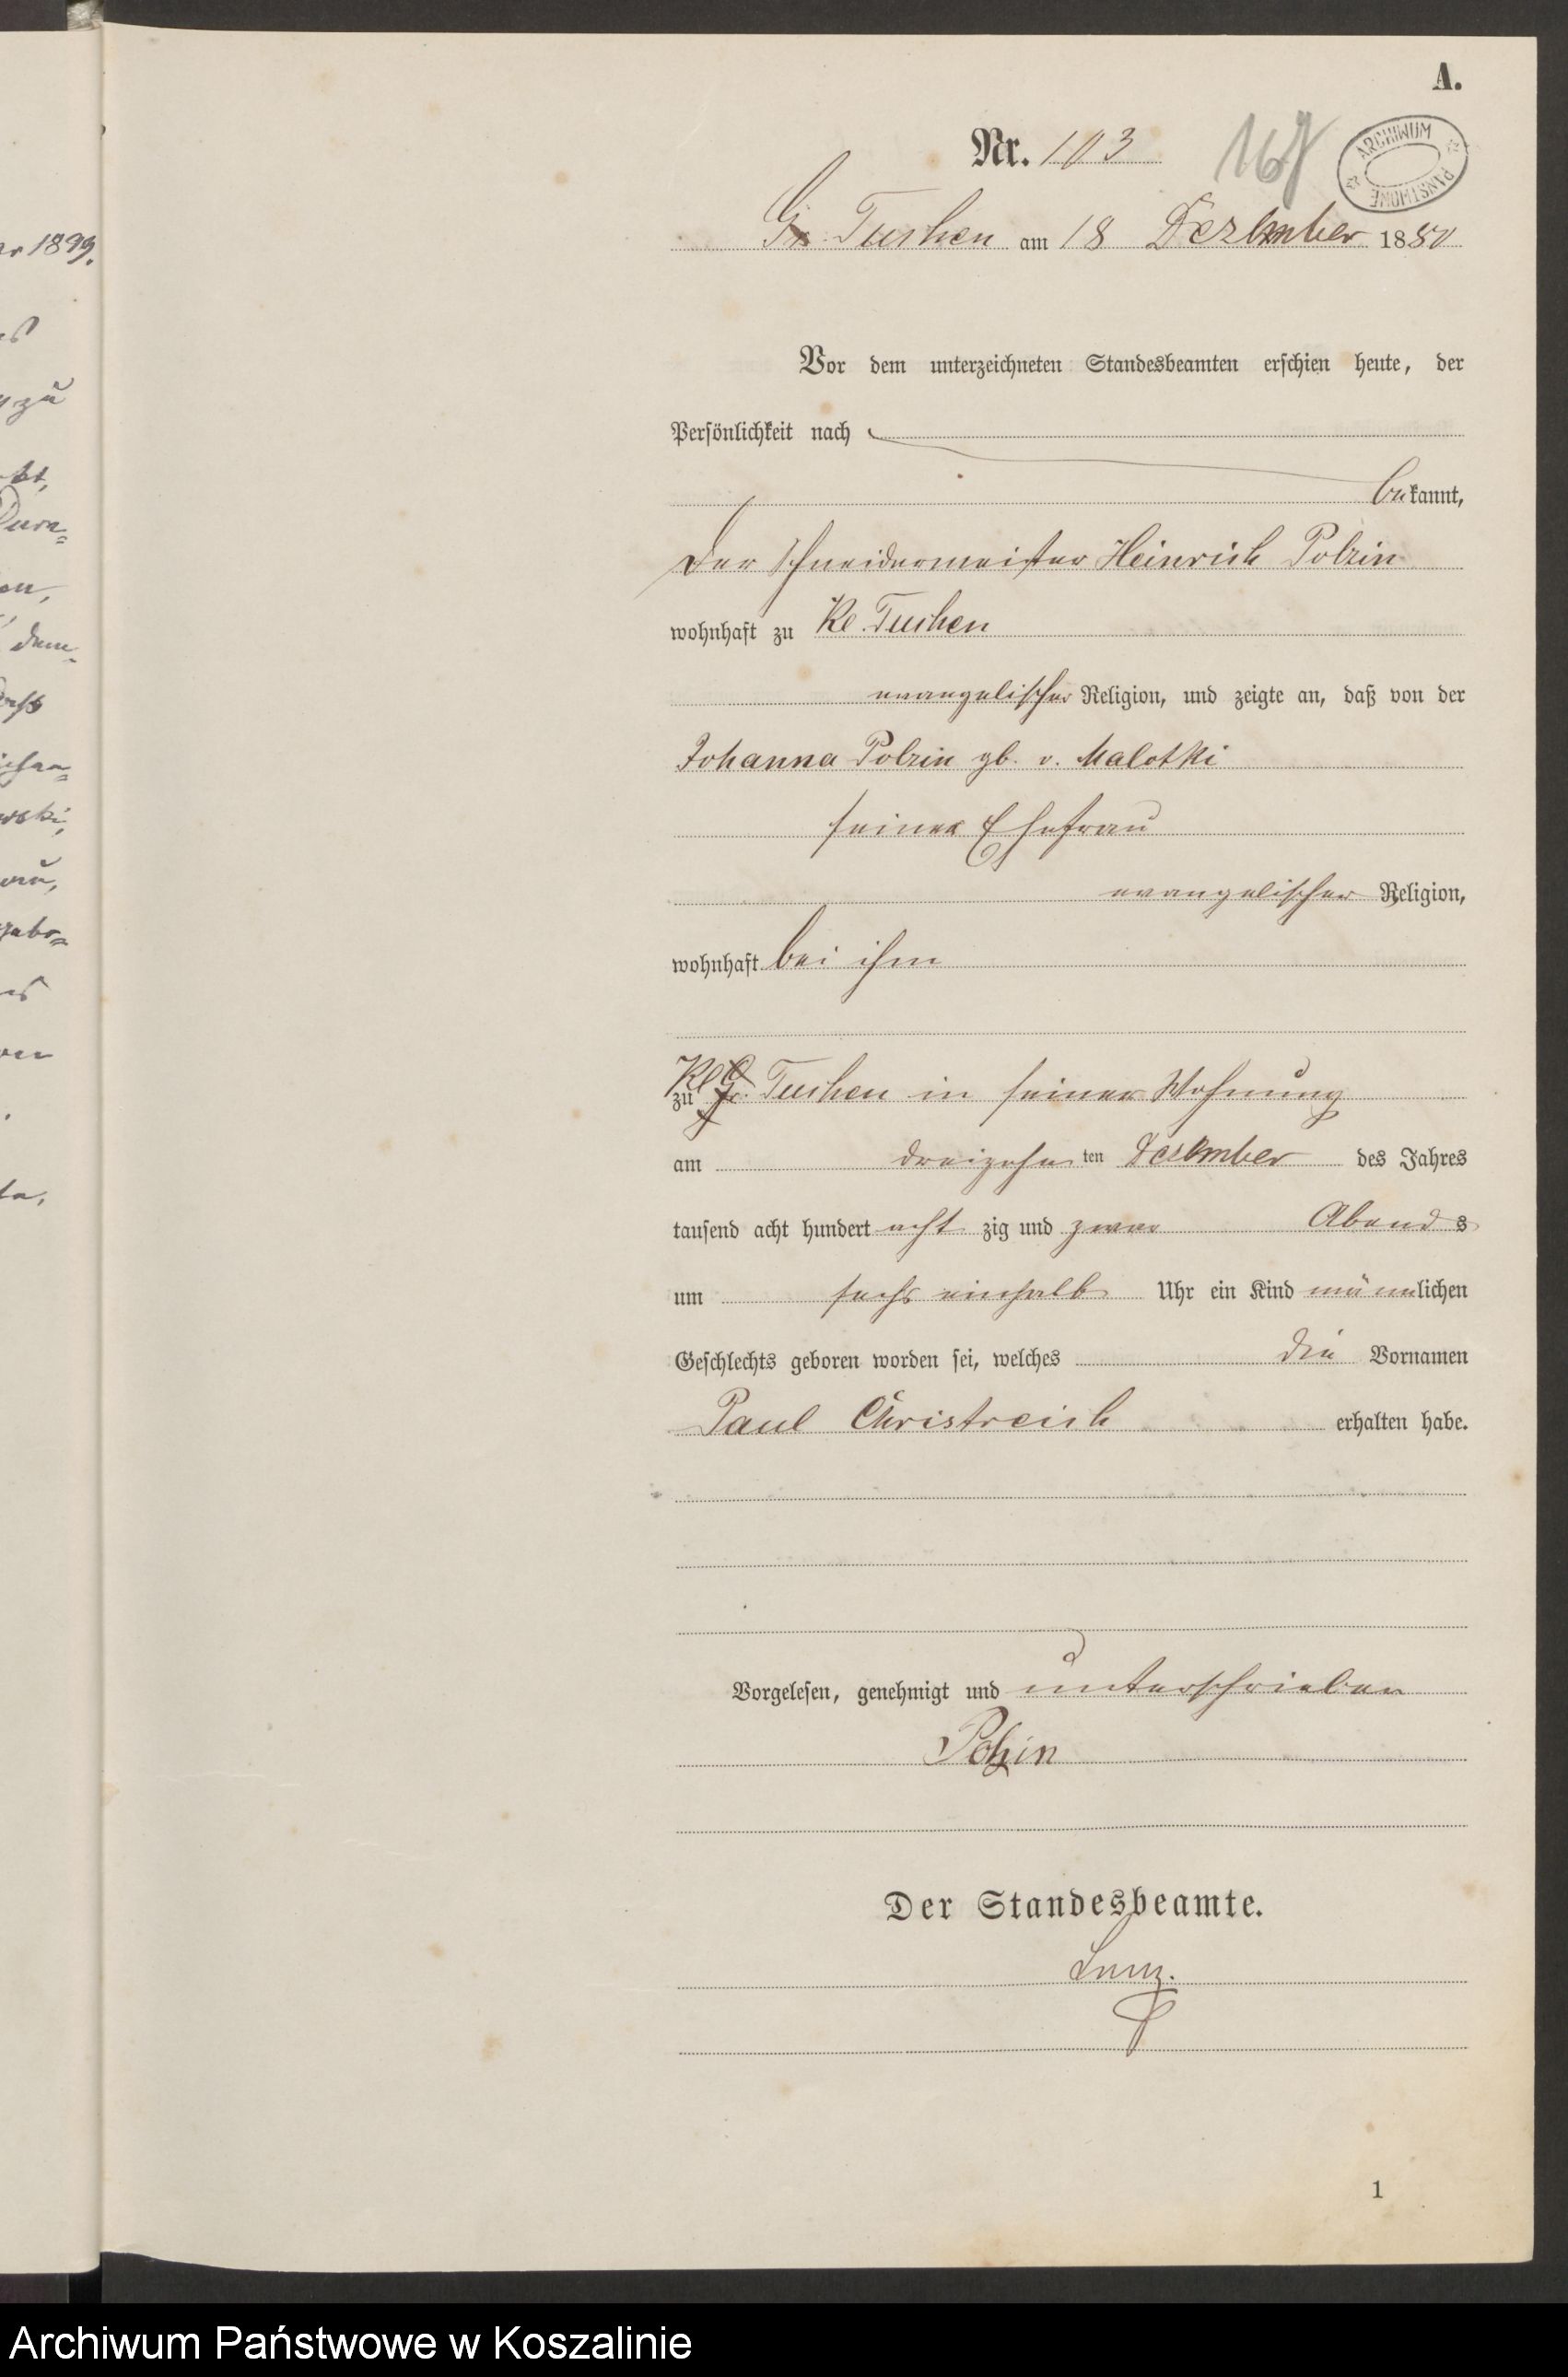 A.
Nr. 103
167
ARCHIWUM PAŃSTWOWE
Gr. Tuchen am 18 Dezember 1880
Vor dem unterzeichneten Standesbeamten erschien heute, der
Persönlichkeit nach
bekannt,
der Schneidermeister Heinrich Polzin
wohnhaft zu Kl. Tuchen
evangelischer Religion, und zeigte an, daß von der
Johanna Polzin gb. v. Malotki
seiner Ehefrau
evangelischer Religion,
wohnhaft bei ihm
Kl
zu Gr. Tuchen in seiner Wohnung
am dreizehnten Dezember des Jahres
tausend acht hundert acht zig und zwar Abends
um sechs einhalb Uhr ein Kind männlichen
Geschlechts geboren worden sei, welches die Vornamen
Paul Christreich erhalten habe.
Vorgelesen, genehmigt und unterschrieben
Polzin
Der Standesbeamte.
1
ar 1899.
zu
Archiwum Państwowe w Koszalinie